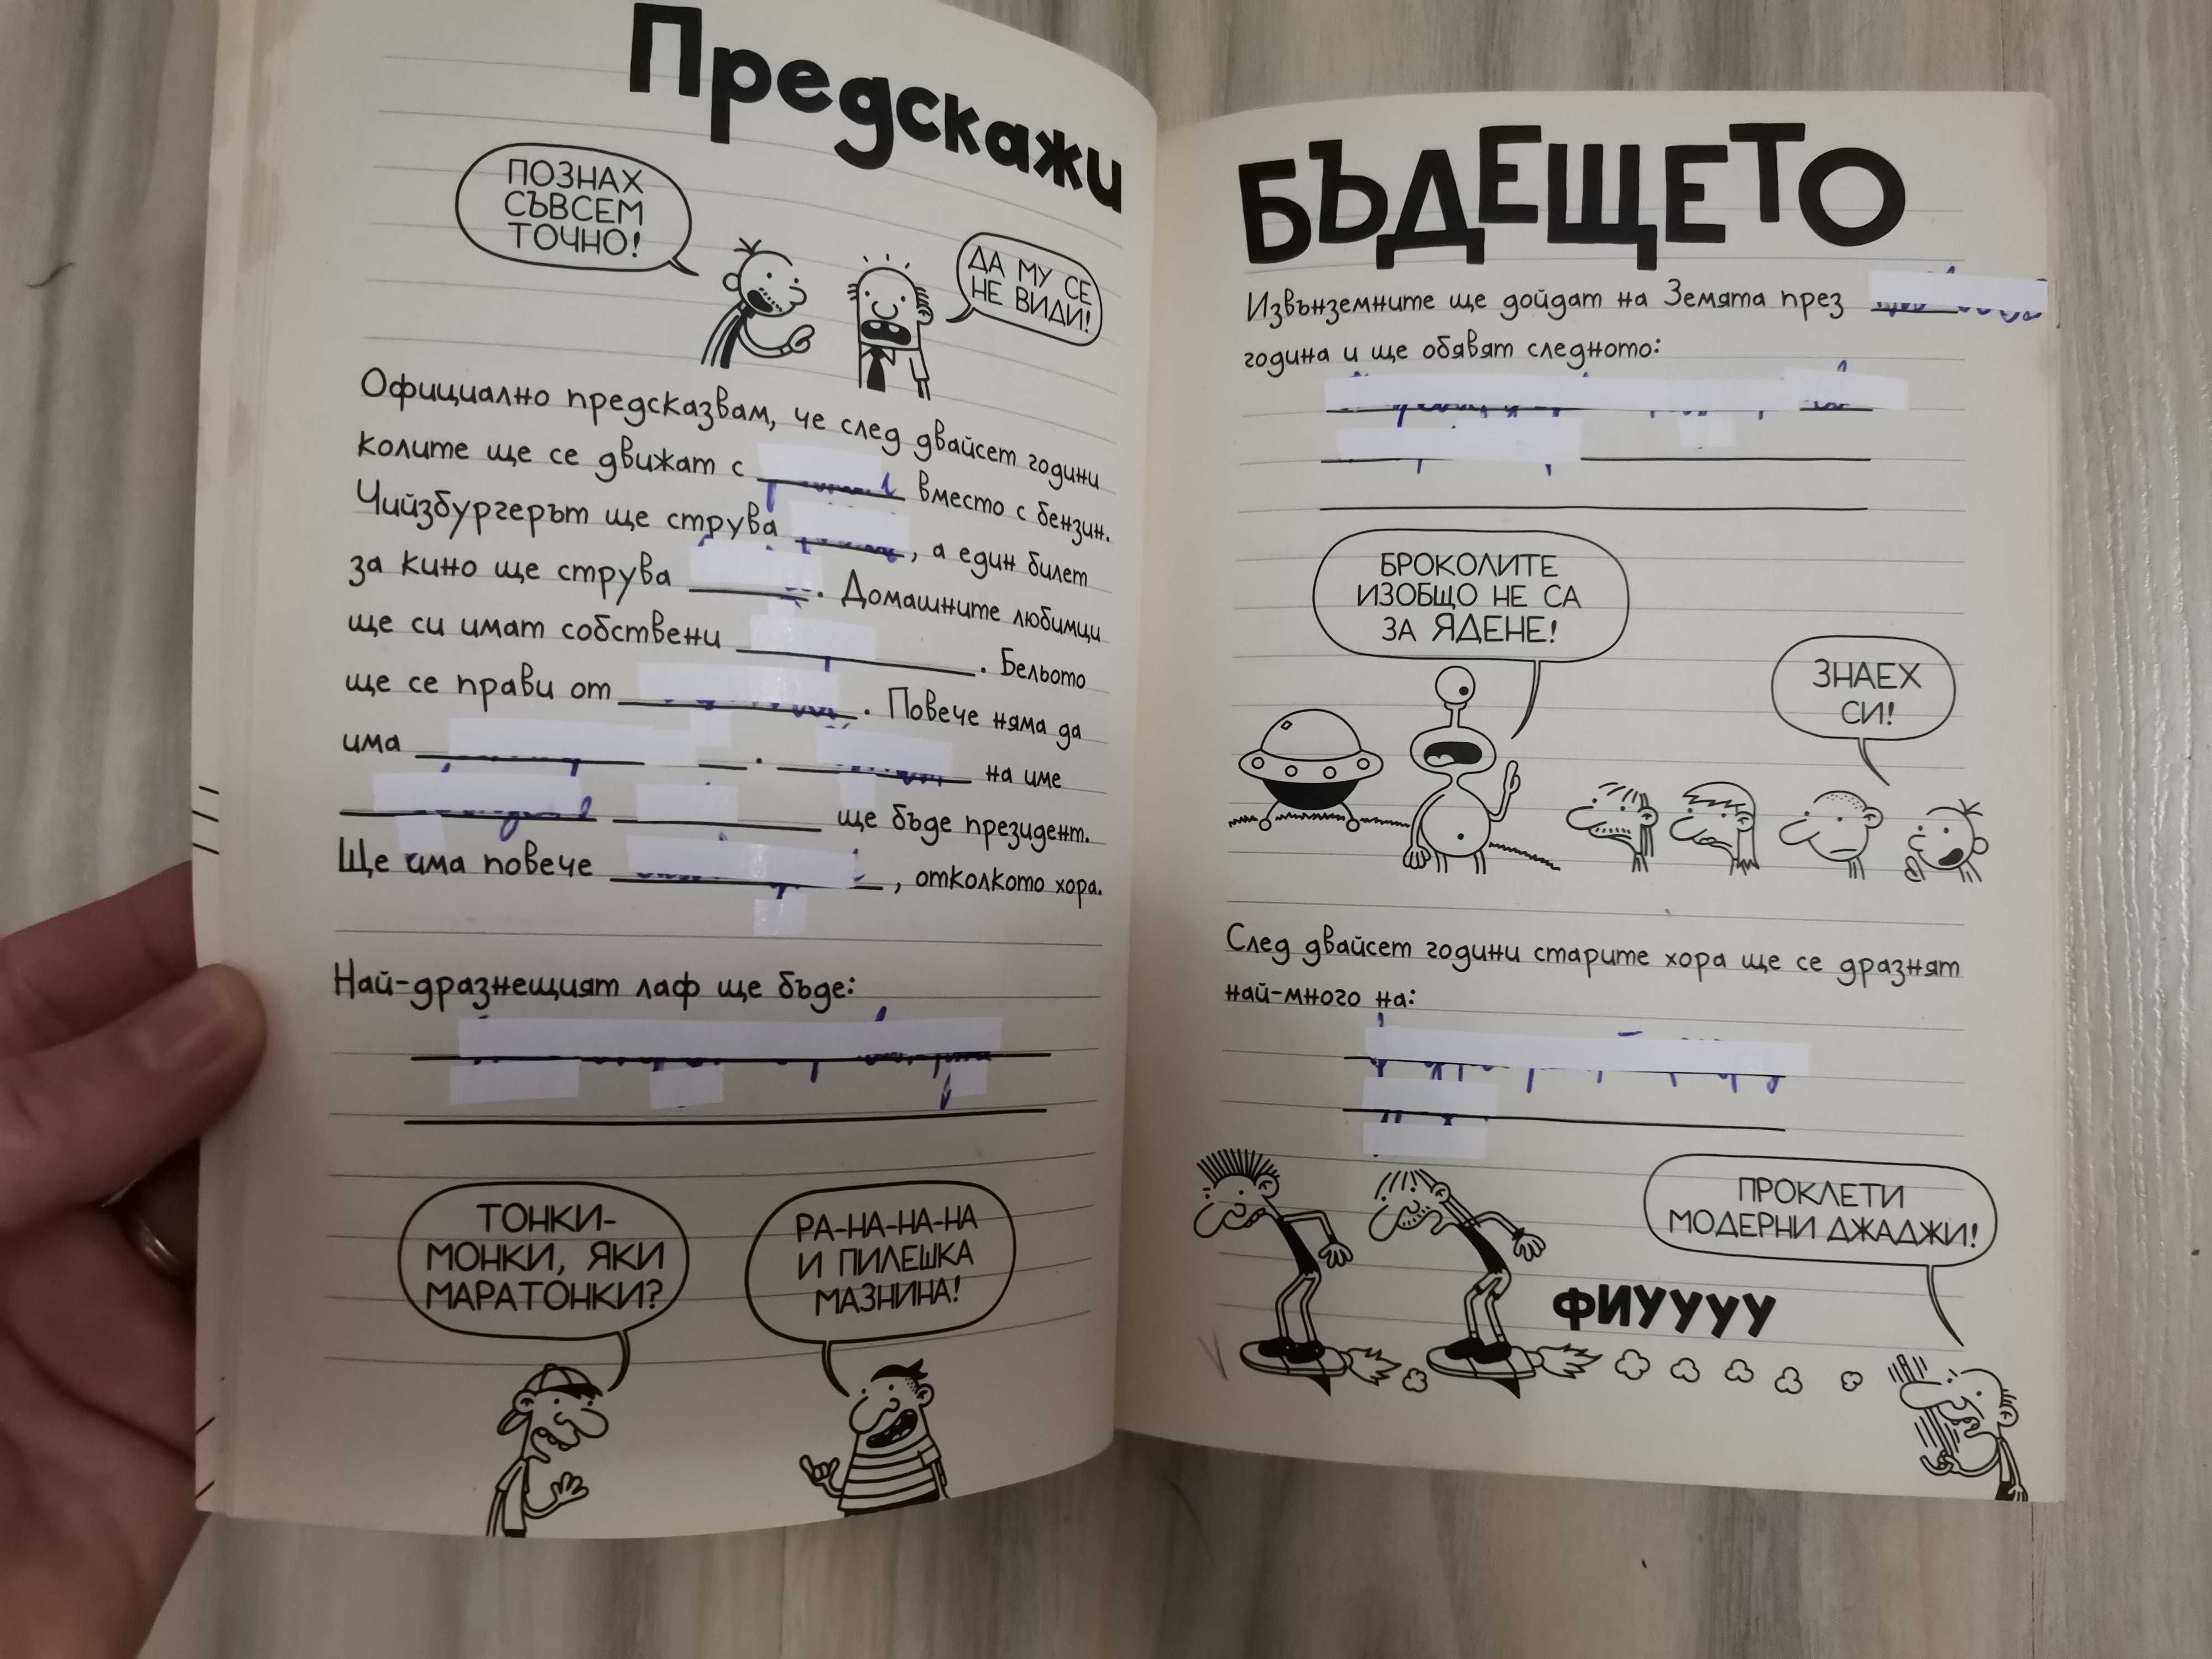 Предскажи
ПОЗНАХ
СЪВСЕМ
ТОЧНО!
ДА МУ СЕ
НЕ ВИДИ!
Официално предсказвам, че след двайсет години
колите ще се движат с вместо с бензин.
Чийзбургерът ще струва , а един билет
за кино ще струва . Домашните любимци
ще си имат собствени . Бельото
ще се прави от . Повече няма да
има . на име
ще бъде президент.
Ще има повече , отколкото хора.
Най-дразнещият лаф ще бъде:
ТОНКИ-
МОНКИ, ЯКИ
МАРАТОНКИ?
РА-НА-НА-НА
И ПИЛЕШКА
МАЗНИНА!
БЪДЕЩЕТО
Извънземните ще дойдат на Земята през
година и ще обявят следното:
БРОКОЛИТЕ
ИЗОБЩО НЕ СА
ЗА ЯДЕНЕ!
ЗНАЕХ
СИ!
След двайсет години старите хора ще се дразнят
най-много на:
ПРОКЛЕТИ
МОДЕРНИ ДЖАДЖИ!
ФИУУУУ